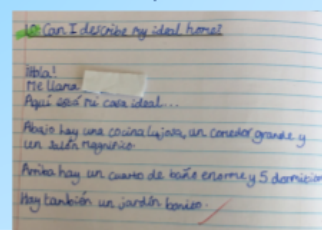 LO: Can I describe my ideal home?
¡Hola!
Me llamo
Aquí está mi casa ideal...
Abajo hay una cocina lujosa, un comedor grande y
un salón magnífico.
Arriba hay un cuarto de baño enorme y 5 dormitorios
Hay también un jardín bonito.